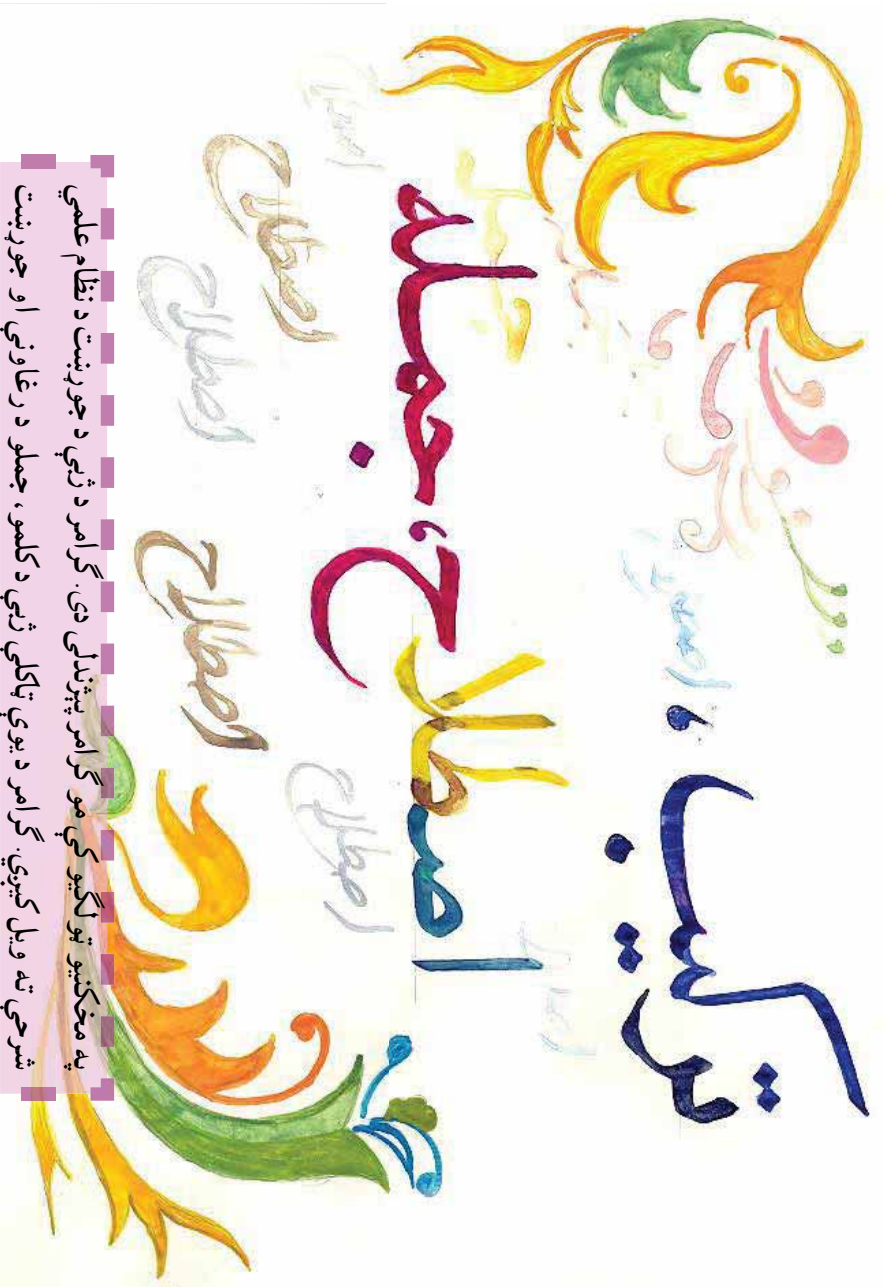 ترکیب،
اصطلاح، جمله
اصطلاح
اصطلاح
اصطلاح
اصطلاح
په مخکنیو ټولګیو کې مو ګرامر پېژندلی دی. ګرامر د ژبې د جوړښت د نظام علمي
شرحې ته ویل کیږي. ګرامر د یوې ټاکلې ژبې د کلمو، جملو د رغاونې او جوړښت